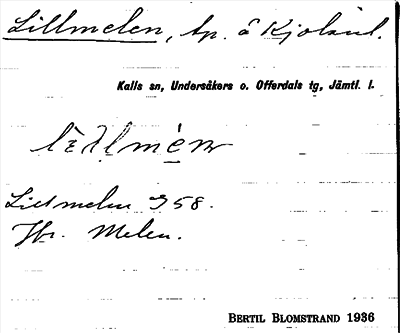 Lillmelen, tp. å Kjoland.
Kalls sn, Undersåkers o. Offerdals tg, Jämtl. l.
Lillmelen 958.
Jfr. Melen.
BERTIL BLOMSTRAND 1936